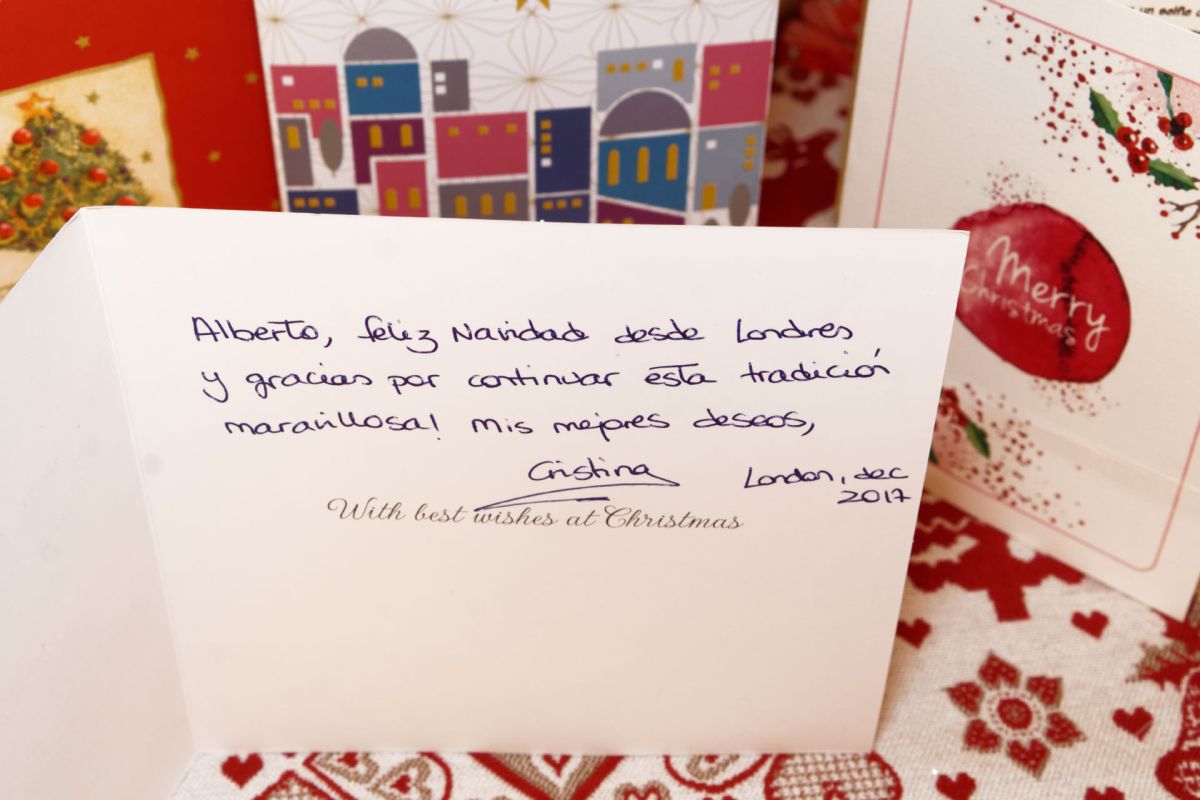 un selfie
Merry
Christmas
Alberto, feliz Navidad desde Londres
y gracias por continuar esta tradición
maravillosa! Mis mejores deseos,
Cristina
London, dec
2017
With best wishes at Christmas